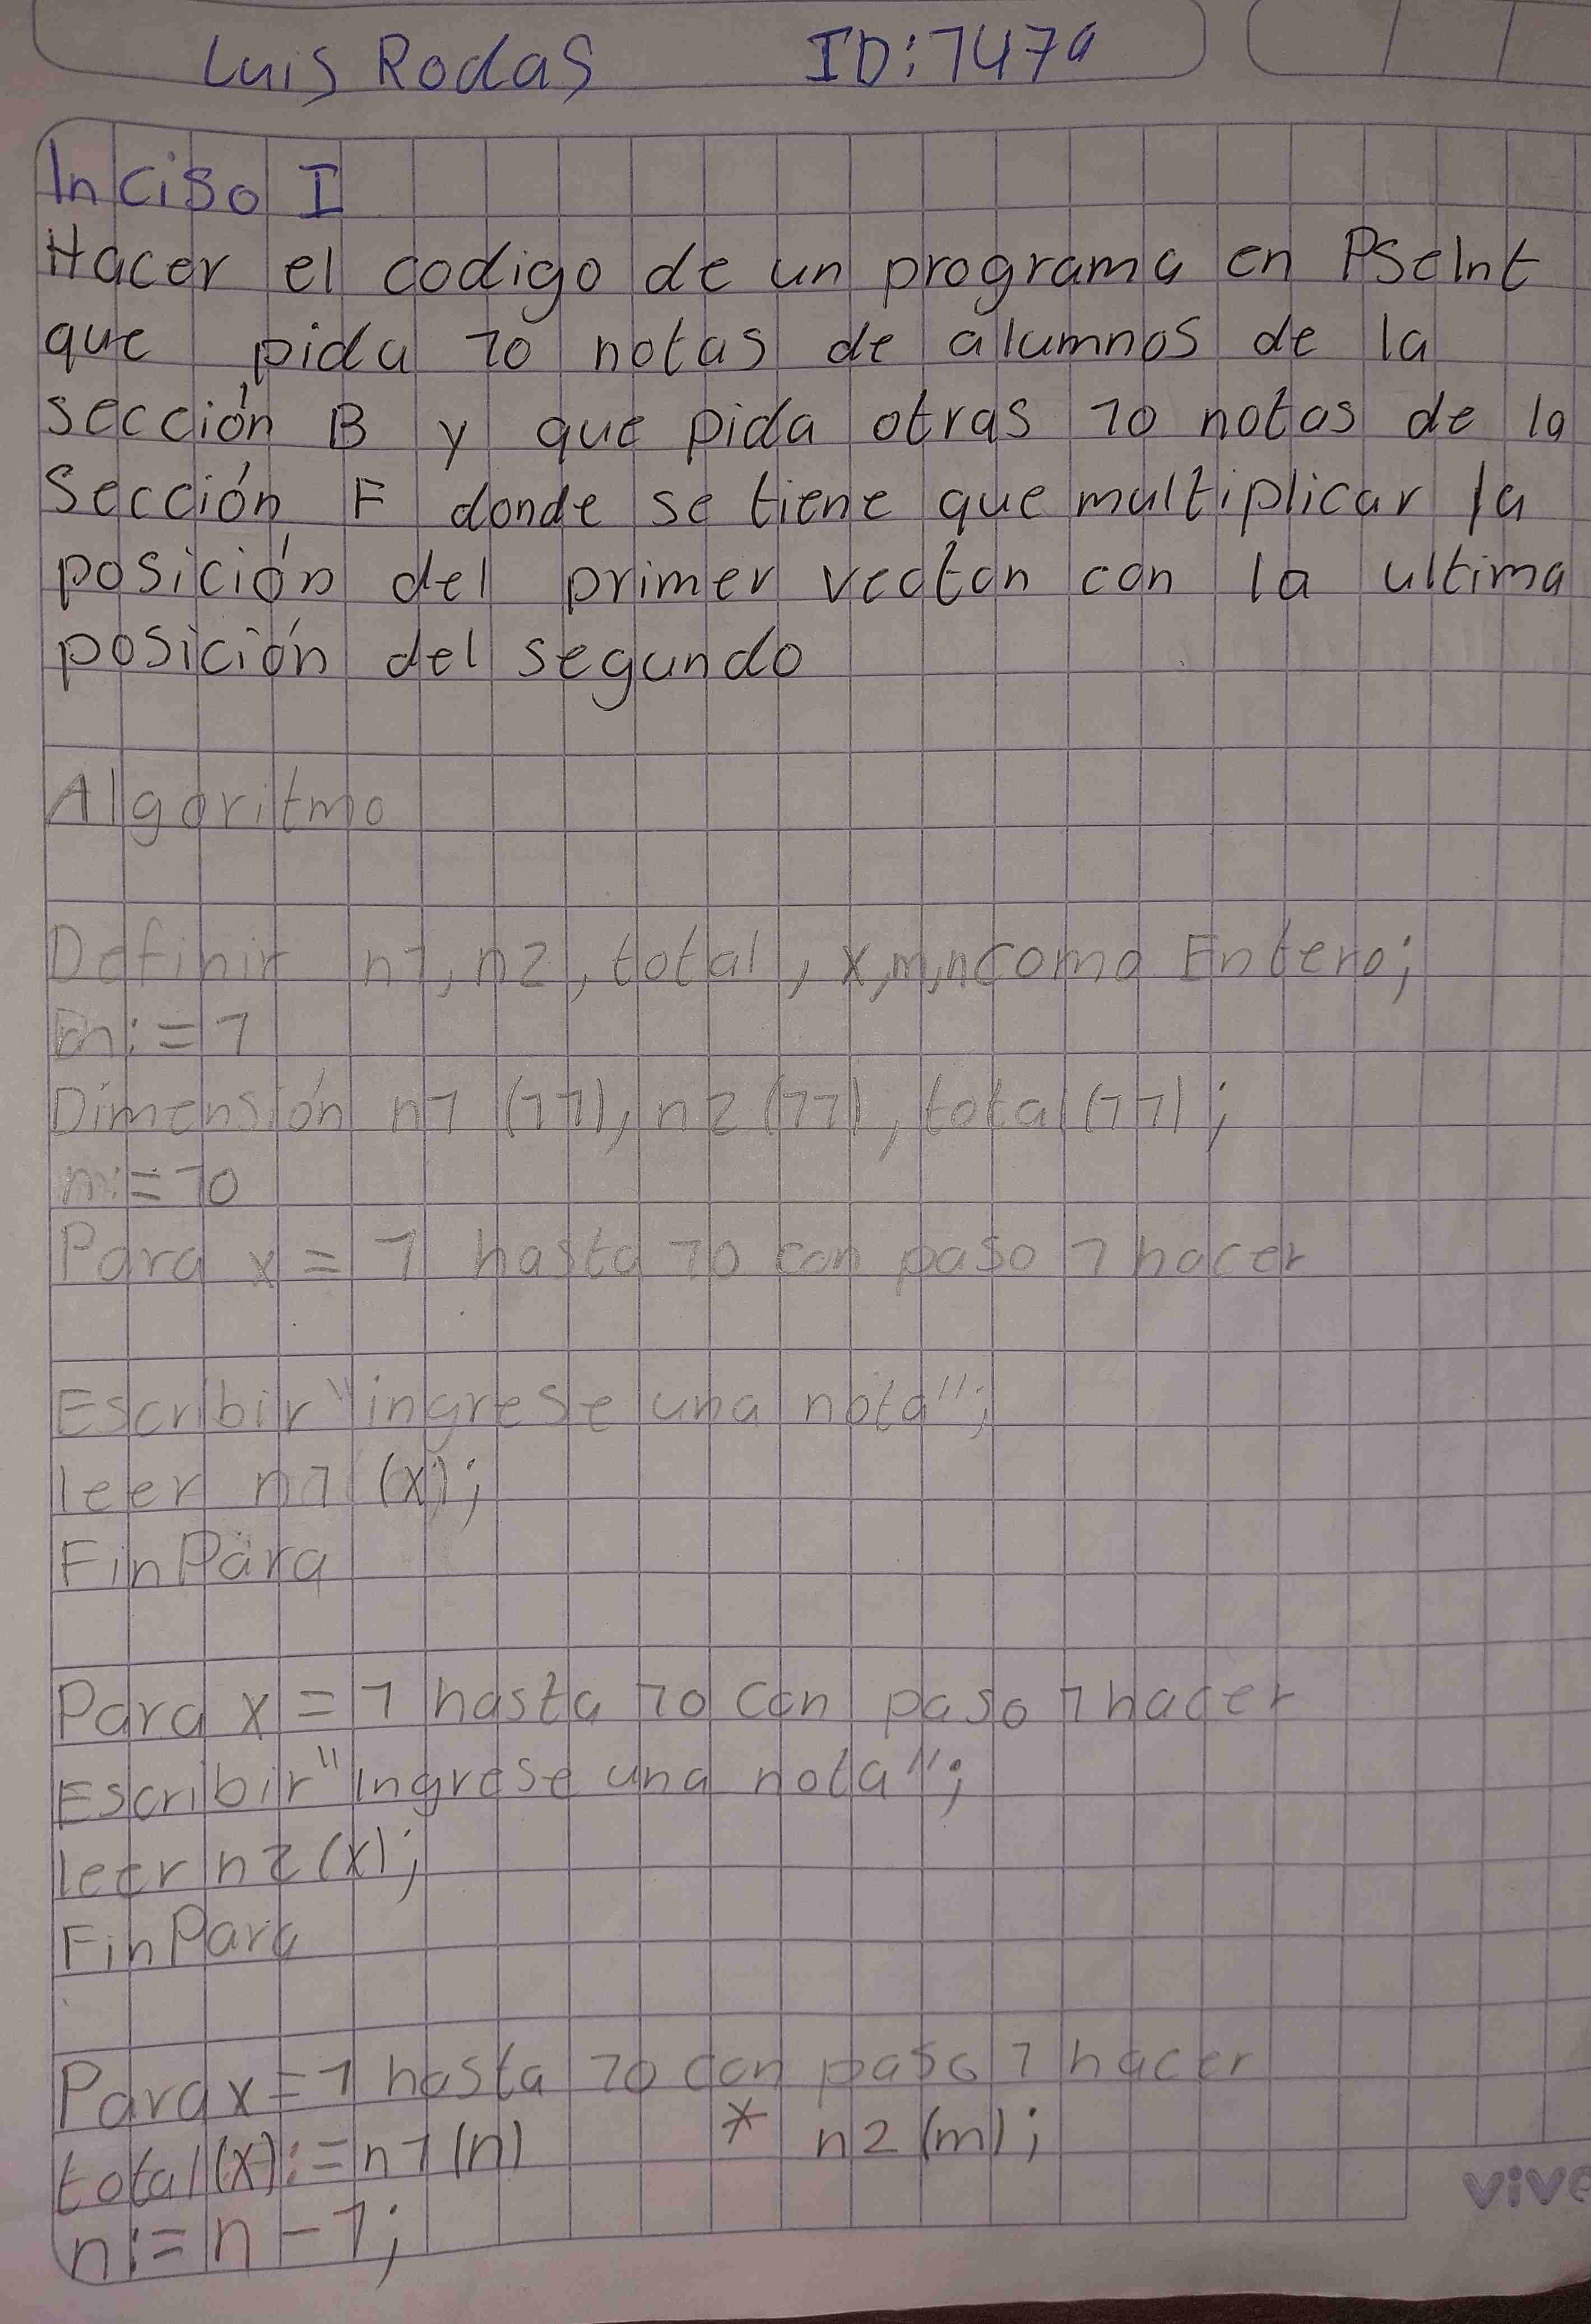 Luis Rodas ID: 1479
Inciso I
Hacer el codigo de un programa en PSeInt
que pida 10 notas de alumnos de la
sección B y que pida otras 10 notas de la
Sección F donde se tiene que multiplicar la
posición del primer vector con la ultima
posición del segundo
Algoritmo
Definir n1, n2, total, x, m, n como Entero;
:=1
Dimensión n1 (11), n2 (11), total (11);
m:=10
Para x = 1 hasta 10 con paso 1 hacer
Escribir "ingrese una nota";
leer n1 (x);
FinPara
Para x = 1 hasta 10 con paso 1 hacer
Escribir "ingrese una nota";
leer n2 (x);
FinPara
Para x = 1 hasta 10 con paso 1 hacer
total (x) := n1 (n) * n2 (m);
n := n - 1;
vive